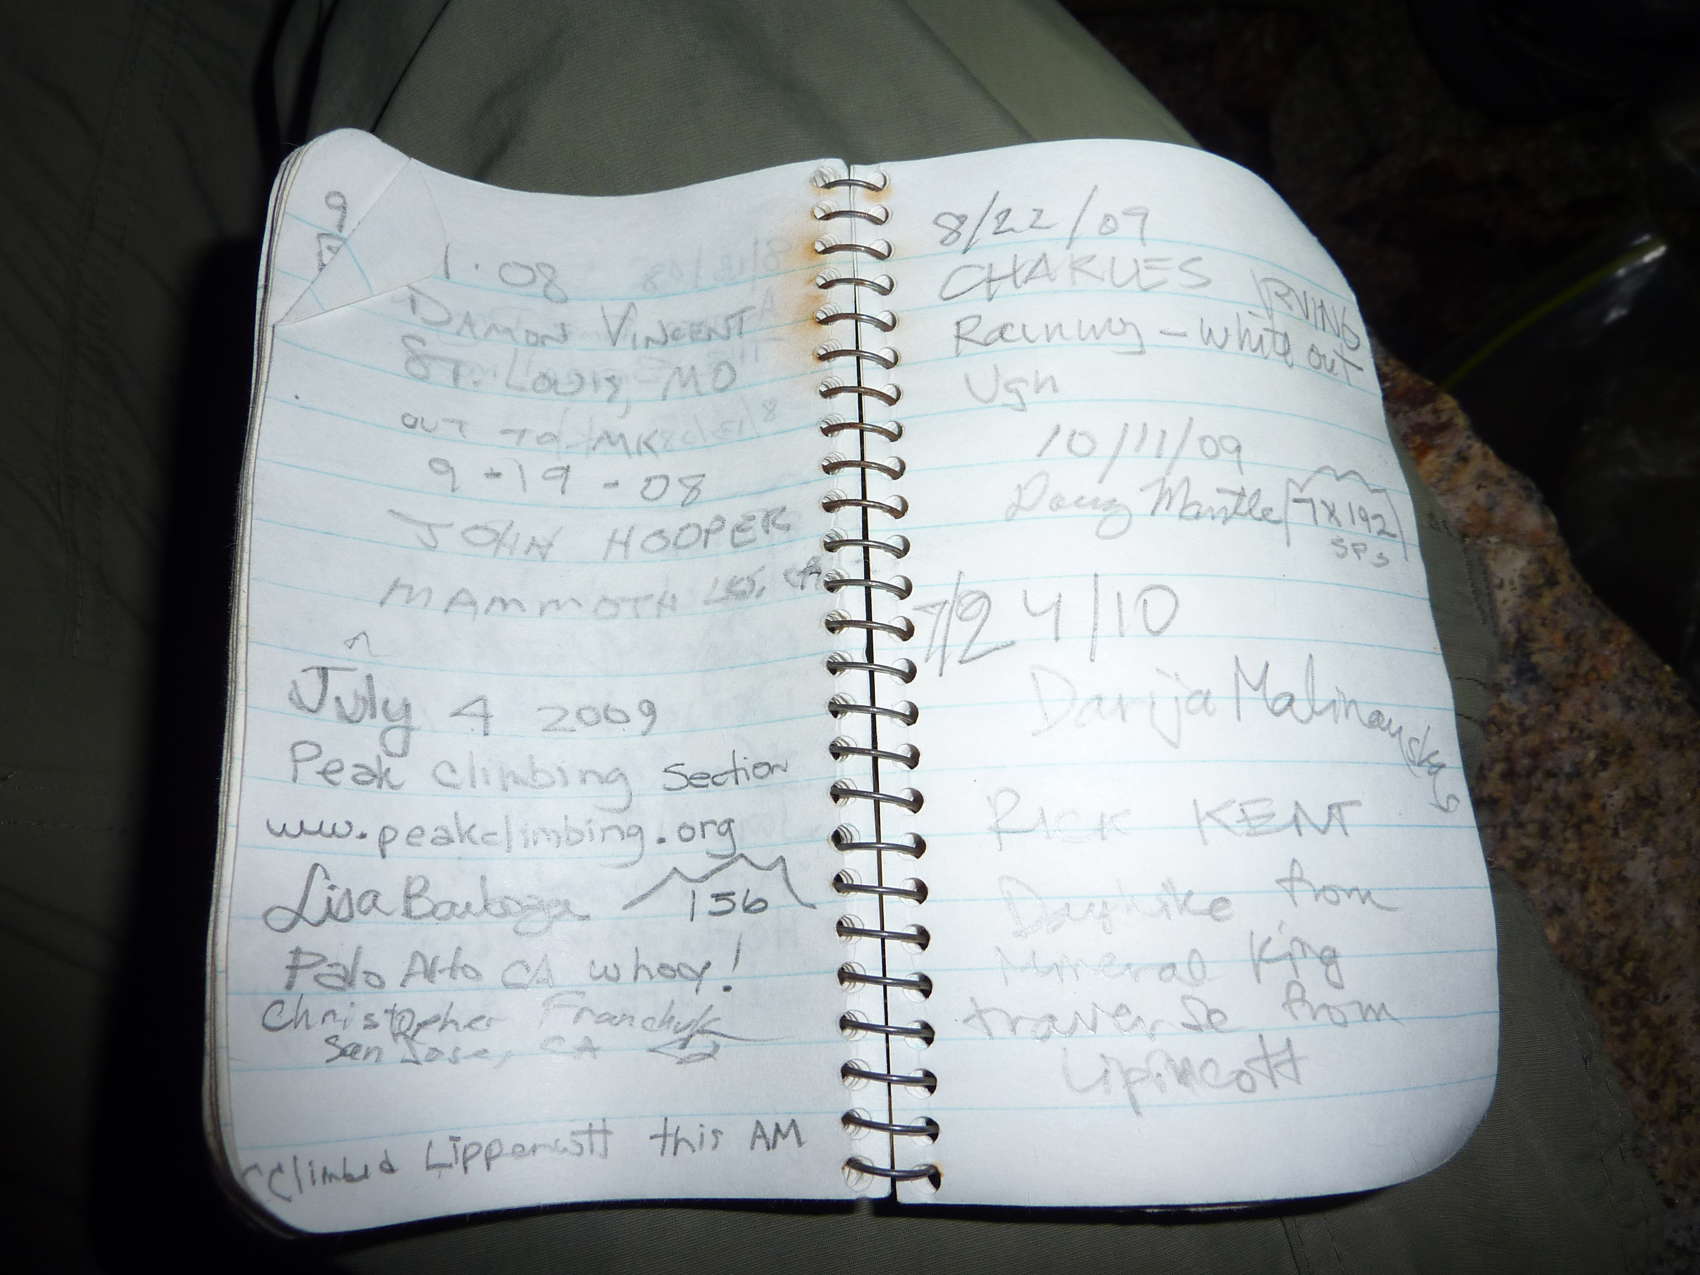 9
1.08
DAMON VINCENT
ST. LOUIS, MO
OUT TO MK
9-19-08
JOHN HOOPER
MAMMOTH LKS, CA
July 4 2009
Peak climbing Section
www.peakclimbing.org
Lisa Barboza 156
Palo Alto CA whoo!
Christopher Franchuk
San Jose, CA
Climbed Lippencott this AM
8/22/09
CHARLES IRVING
Raining - white out
Ugh
10/11/09
Doug Mantle 7X192
SPS
7/24/10
Darija Malinansky
RICK KENT
Dayhike from
Mineral King
traverse from
Lipincott